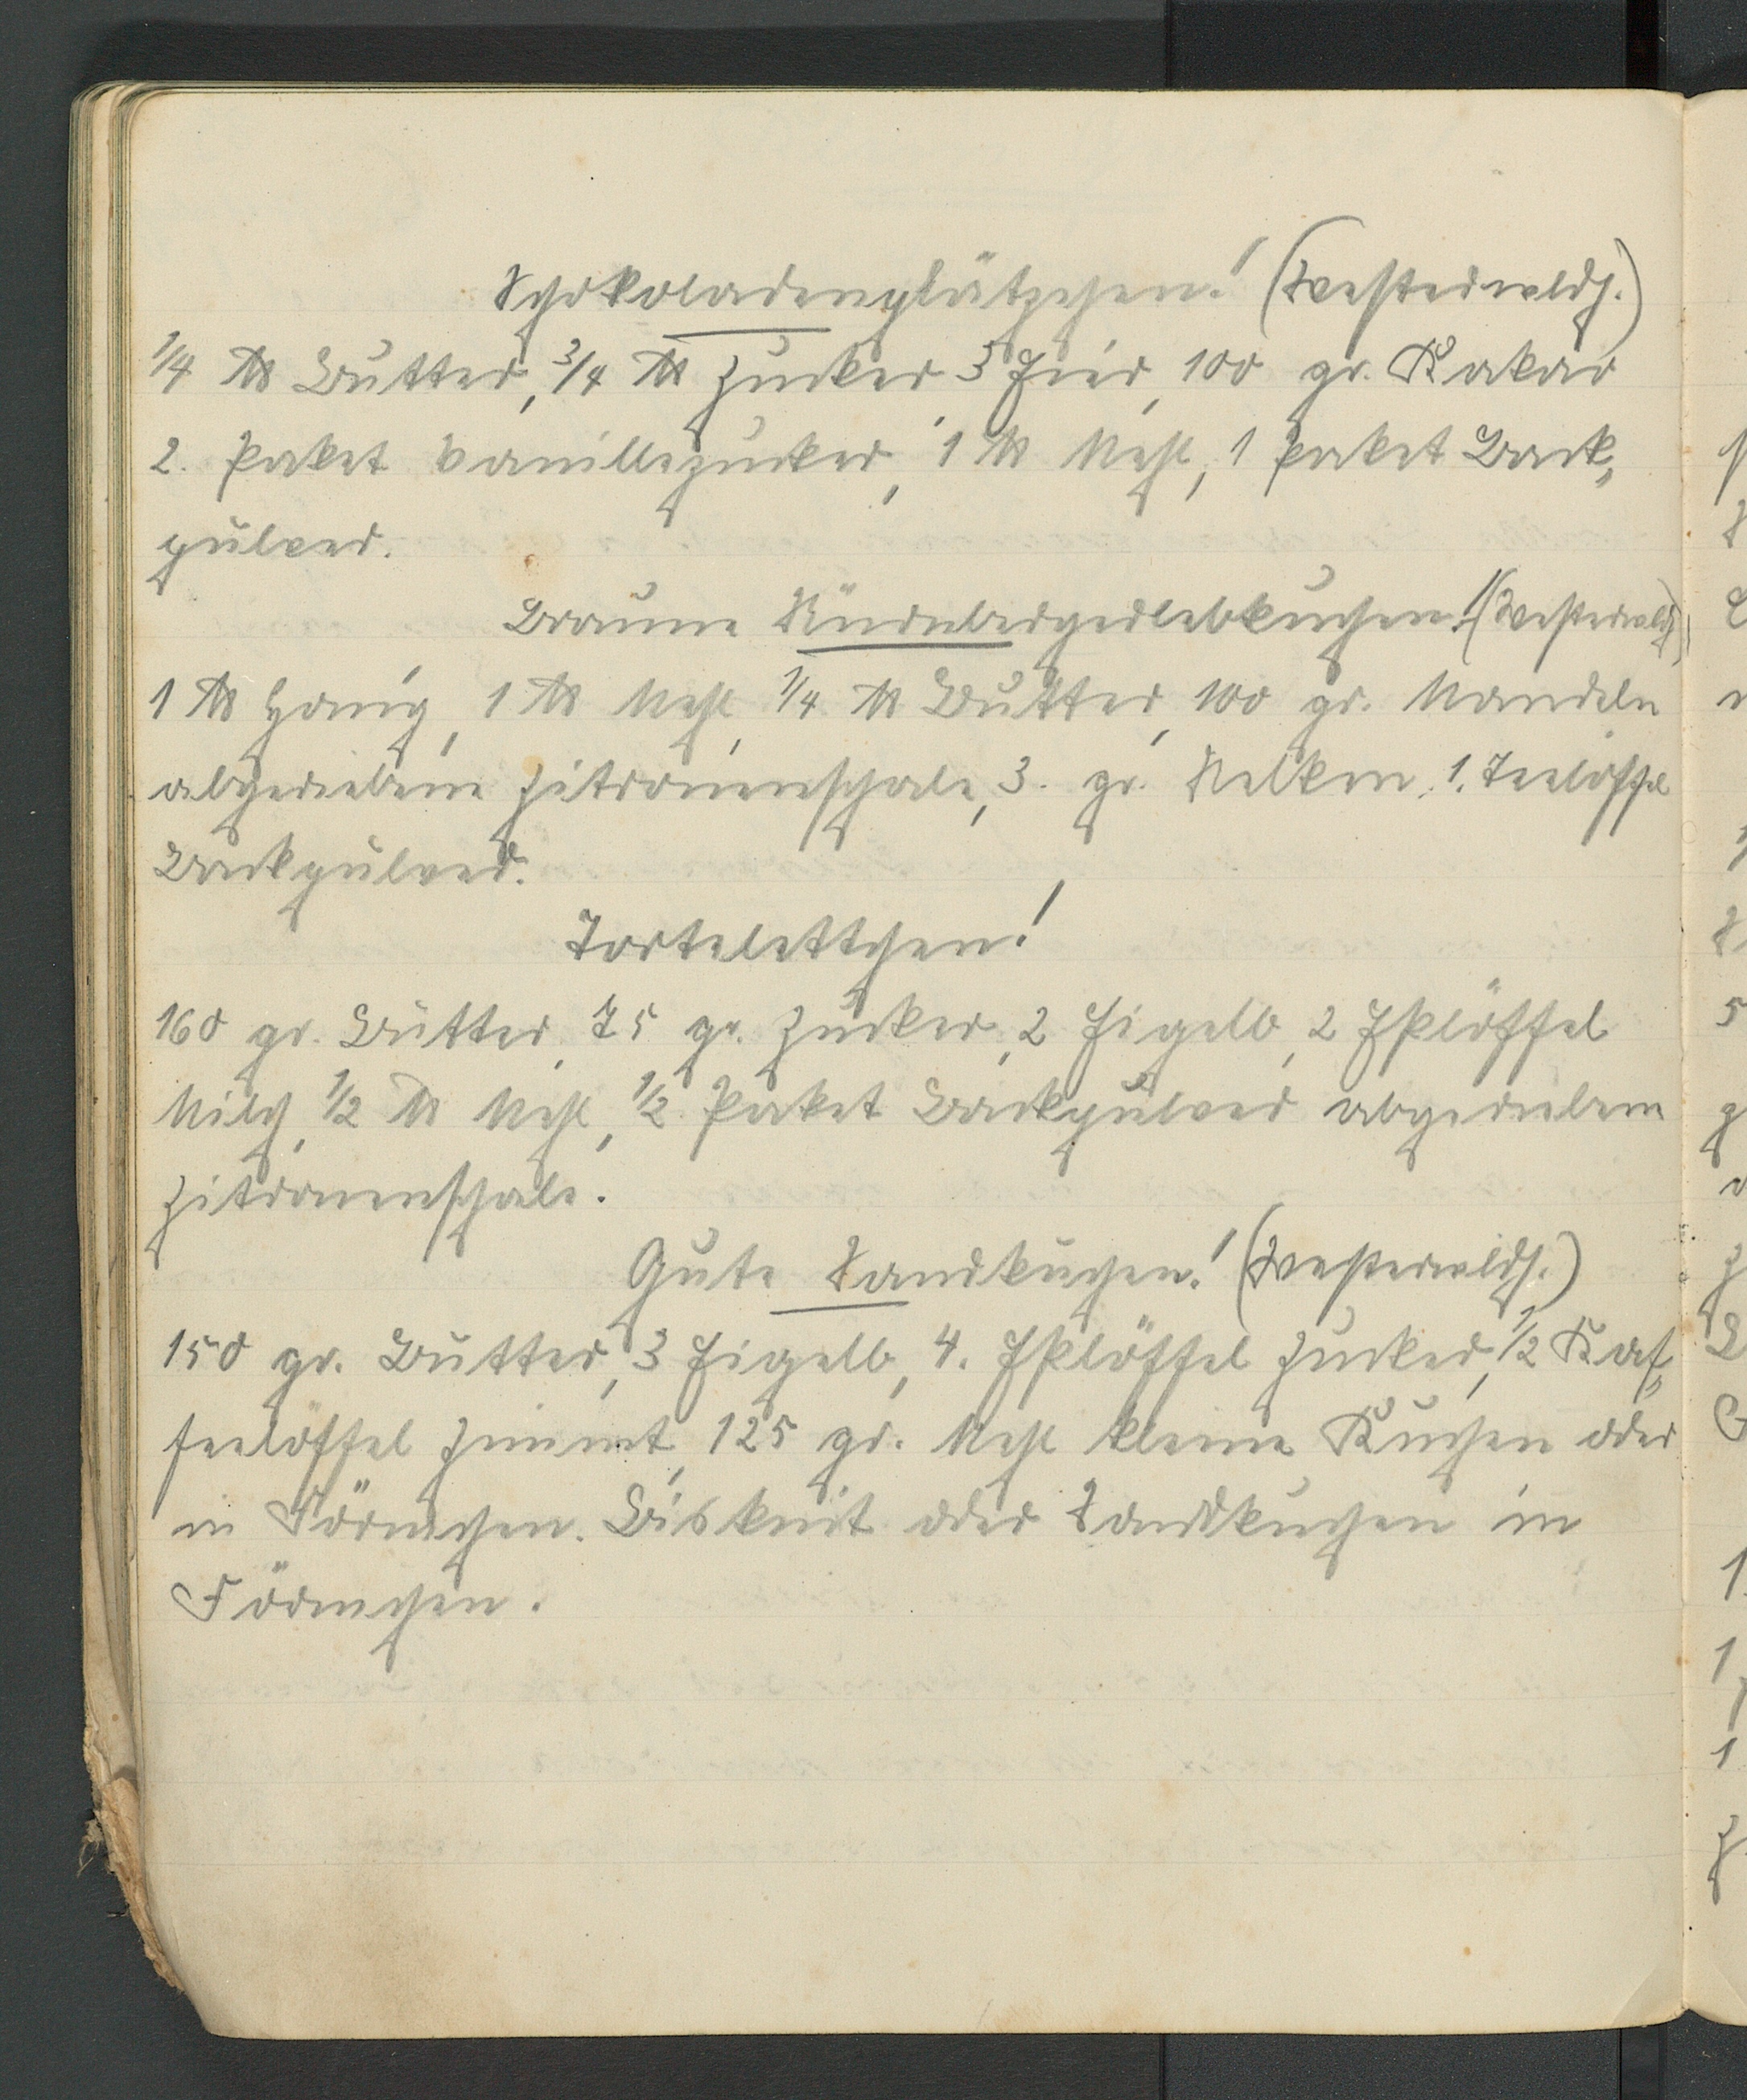 Schokoladenplätzchen! (Westerwaldh.)
1/4 ℔ Butter, 3/4 ℔ Zucker 5 Eier, 100 gr. Kakao
2. Paket Vanillezucker, 1 ℔ Mehl, 1 Paket Back„
pulver.
Braune Nürnbergerlebkuchen! (Westerwaldh.)
1 ℔ Honig, 1 ℔ Mehl, 1/4 ℔ Butter, 100 gr. Mandeln
abgeriebene Zitronenschale, 3. gr. Nelken, 1. Teelöffel
Backpulver.
Tortelettchen!
160 gr. Butter, 75 gr. Zucker, 2 Eigelb, 2 Eßlöffel
Milch, 1/2 ℔ Mehl, 1/2 Paket Backpulver abgeriebene
Zitronenschale.
Gute Sandkuchen! (Westerwaldh.)
150 gr. Butter, 3 Eigelb, 4. Eßlöffel Zucker, 1/2 Kaf„
feelöffel Zimmt, 125 gr. Mehl kleine Kuchen oder
in Förmchen. Biskuit oder Sandkuchen in
Förmchen.